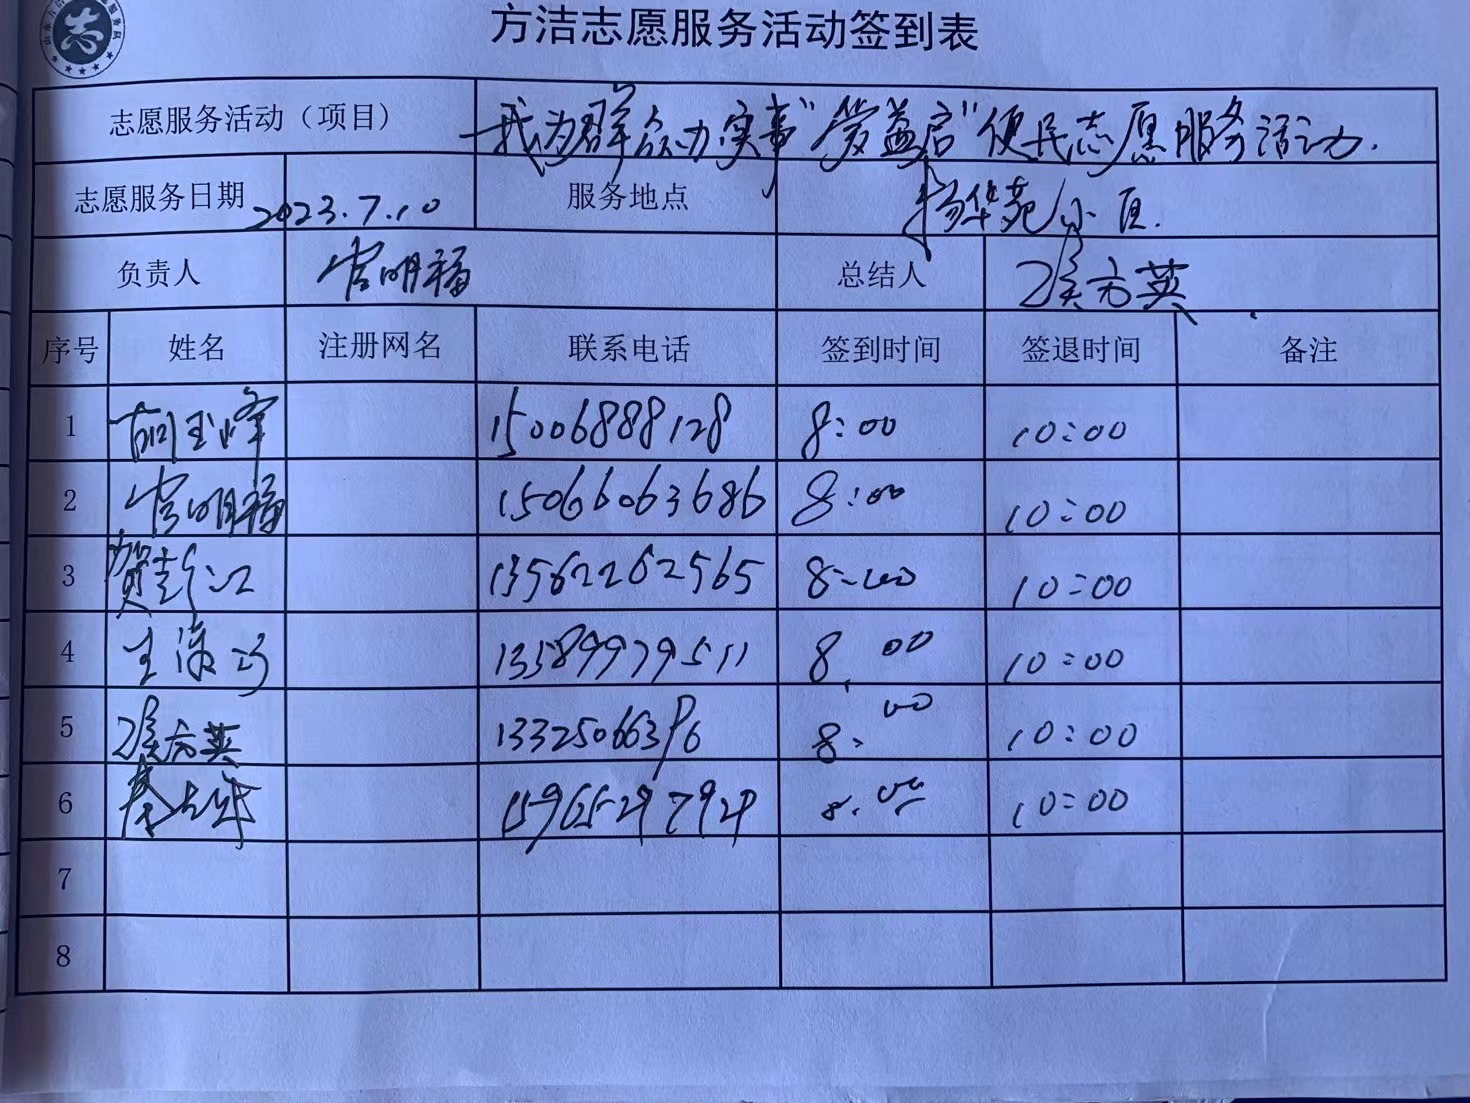 志
方洁志愿服务活动签到表
志愿服务活动（项目） 我为群众办实事"爱益启"便民志愿服务活动.
志愿服务日期 2023.7.10 服务地点 杨华苑小区.
负责人 官明福 总结人 侯方英
序号 姓名 注册网名 联系电话 签到时间 签退时间 备注
1 胡玉峰 15006888128 8:00 10:00
2 官明福 15066063686 8:00 10:00
3 贺彭江 13562262565 8:00 10:00
4 王 13589979511 8:00 10:00
5 侯方英 13325066396 8:00 10:00
6 秦 8:00 10:00
7
8